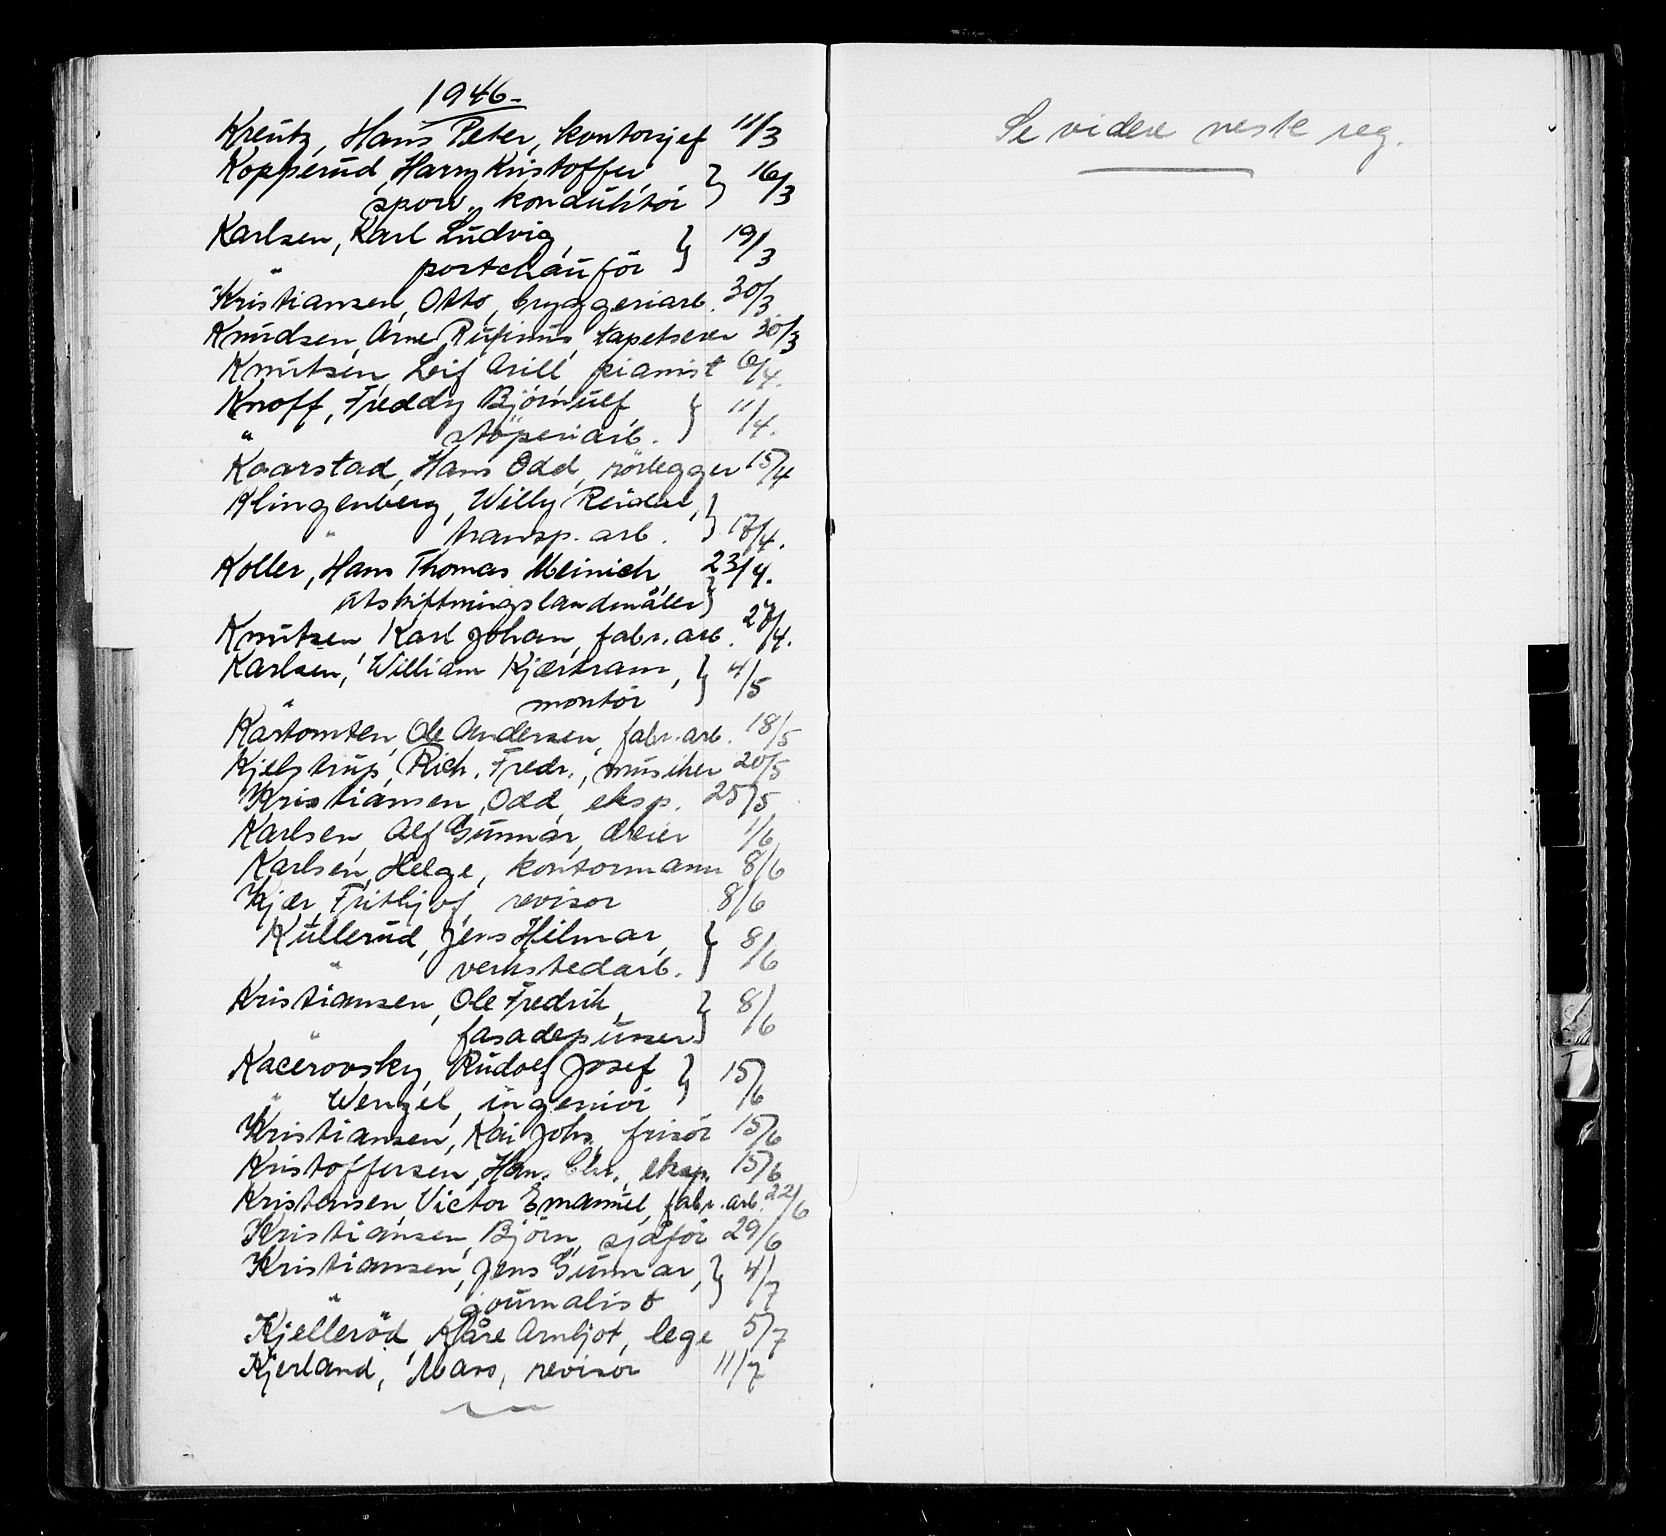 1946.
Kreutz, Hans Peter, kontorsjef 11/3
Kopperud, Harry Kristoffer } 16/3
sporv. konduktör
Karlsen, Karl Ludvig, } 19/3
" postchauför
Kristiansen, Otto, bryggeriarb. 30/3
Knudsen, Arne Rufinus, tapetserer 30/3
Knutsen, Leif Arill pianist 6/4.
Knoff, Freddy Björnulf } 11/4.
" stöperiarb.
Kaarstad, Hans Odd, rörlegger 15/4
Klingenberg, Willy Reidar, } 17/4.
" transp. arb.
Koller, Hans Thomas Meinich, 23/4.
utskiftningslandmåler }
Knutsen, Karl Johan, fabr. arb. 27/4.
Karlsen, William Kjærtram, } 4/5
" montör
Kartomten, Ole Andersen, fabr. arb. 18/5
Kjelstrup, Rich. Fredr., musiker 20/5
Kristiansen, Odd, eksp. 25/5
Karlsen, Alf Gunnar, dreier 1/6
Karlsen, Helge, kontormann 8/6
Kjær, Frithjof, revisor 8/6
Kullerud, Jens Hilmar, } 8/6
" verkstedarb.
Kristiansen, Ole Fredrik, } 8/6
" fasadepusser
Kacerovsky, Rudolf Josef } 15/6
" Wenzel, ingeniör
Kristiansen, Kai Johs. frisör 15/6
Kristoffersen, Han. Chr., eksp. 15/6
Kristensen Victor Emanuel, fabr. arb. 22/6
Kristiansen, Björn, sjåför 29/6
Kristiansen, Jens Gunnar, } 4/7
" " journalist
Kjelleröd, Kåre Arnljot, lege 5/7
Kjerland, Mars, revisor 11/7
Se videre neste reg.